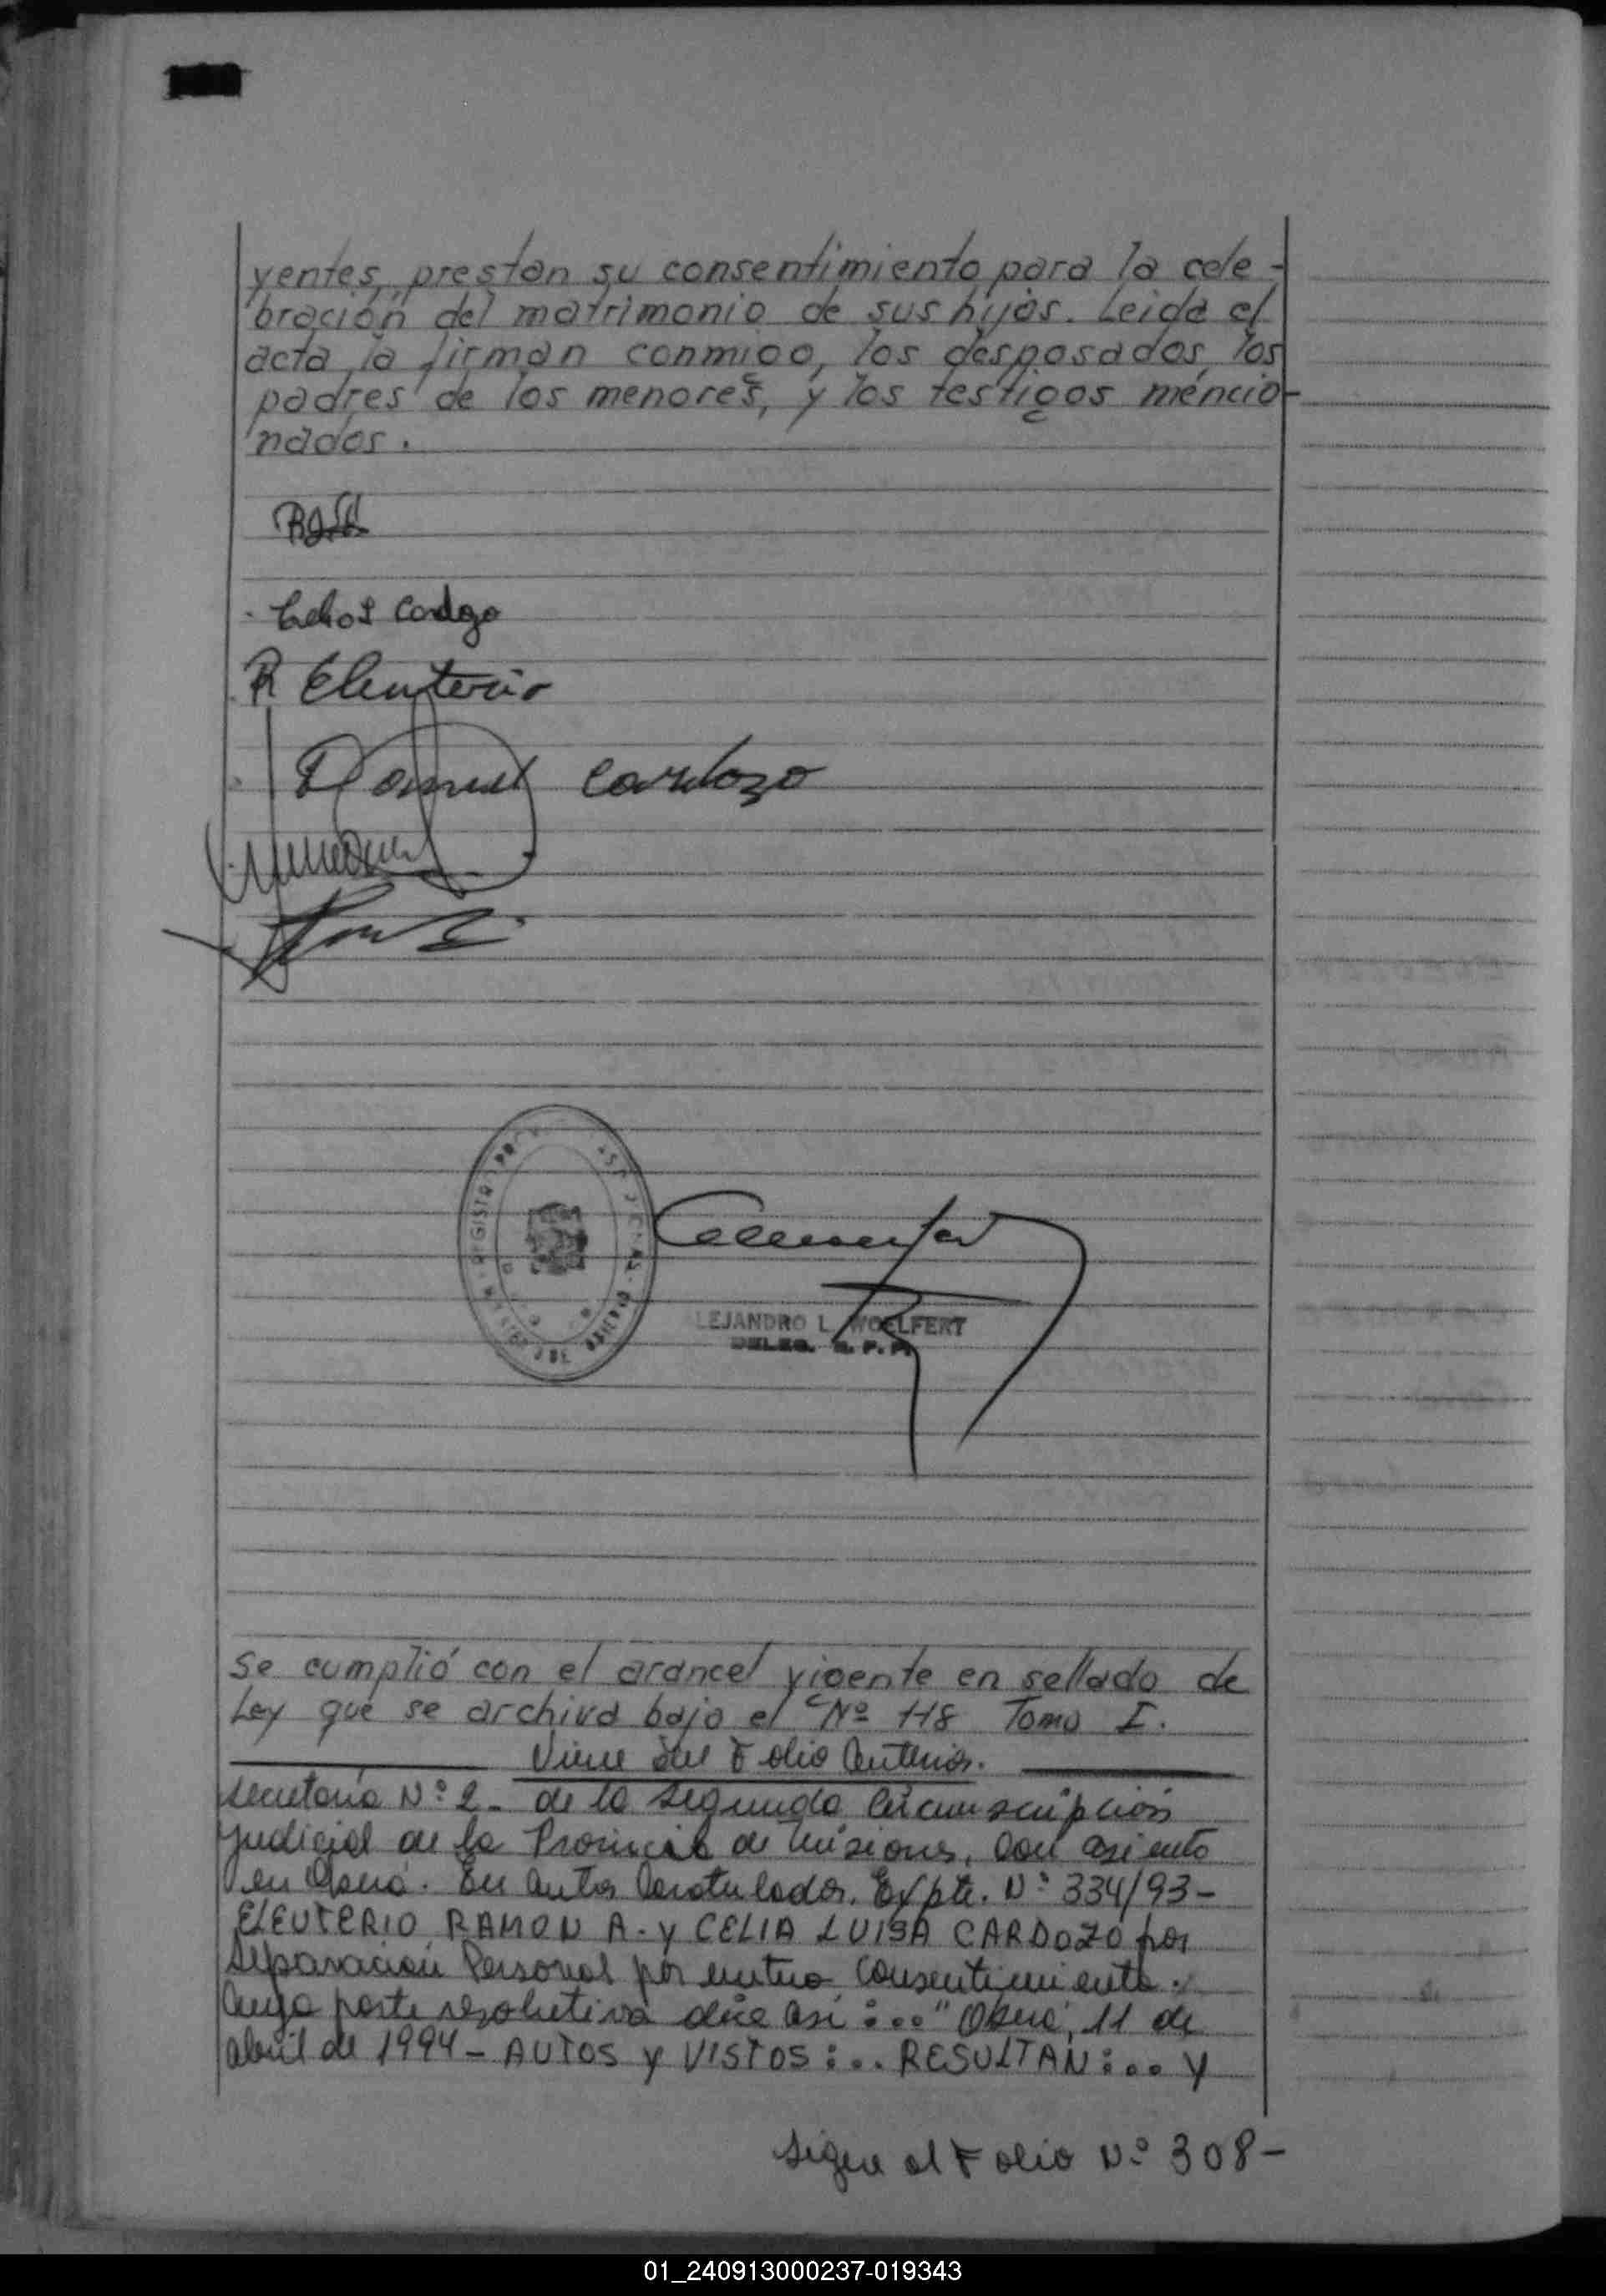 yentes, prestan su consentimiento para la cele-
bración del matrimonio de sus hijos. Leida el
acta la firman conmigo, los desposados, los
padres de los menores, y los testigos mencio-
nados.
R Eleuterio
Daniel Cardozo
ALEJANDRO L. WOELFERT
DELEG. R. P. P.
Se cumplió con el arancel vigente en sellado de
Ley que se archiva bajo el Nº 118 Tomo I.
Viene del Folio Anterior.
Secretaría Nº 2- de la Segunda Circunscripción
Judicial de la Provincia de Misiones, con asiento
en Oberá. En Autos Caratulados. Expte. Nº 334/93-
ELEUTERIO RAMON A. y CELIA LUISA CARDOZO por
Separación Personal por mutuo Consentimiento.
Cuya parte resolutiva dice así:..." Oberá, 11 de
abril de 1994- AUTOS y VISTOS:.. RESULTAN:... y
Sigue al Folio Nº 308-
01_240913000237-019343